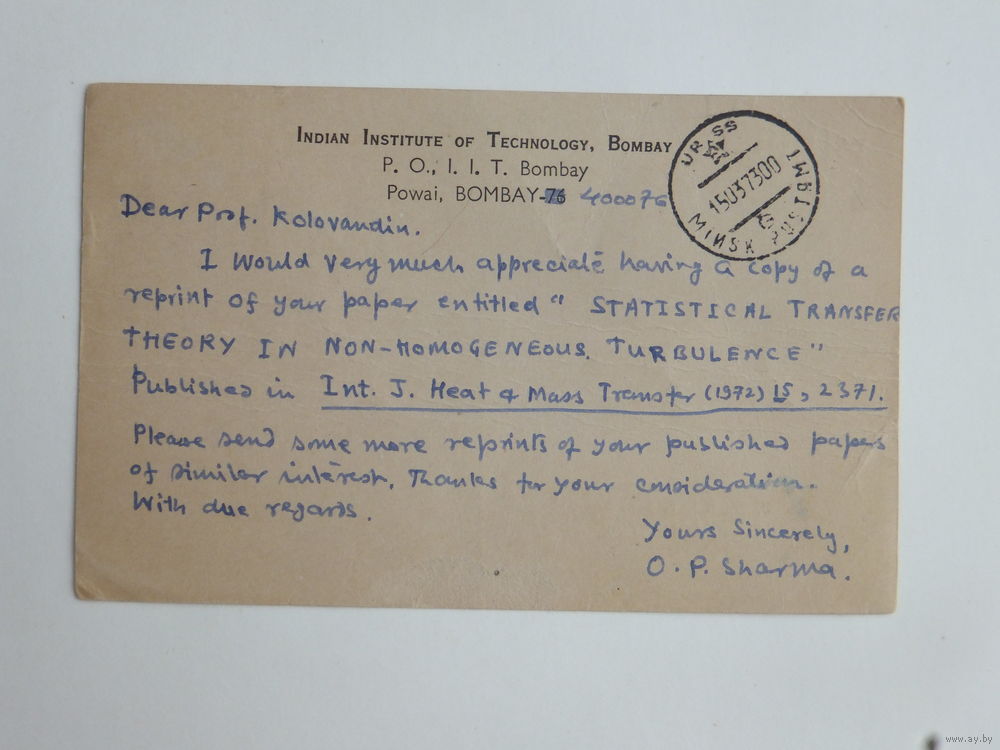 INDIAN INSTITUTE OF TECHNOLOGY, BOMBAY
P. O., I. I. T. Bombay
Powai, BOMBAY-76 400076
Dear Prof. Kolovandin.
I would very much appreciate having a copy of a
reprint of your paper entitled " STATISTICAL TRANSFER
THEORY IN NON-HOMOGENEOUS TURBULENCE"
Published in Int. J. Heat & Mass Transfer (1972) 15, 2371.
Please send some more reprints of your published papers
of similar interest. Thanks for your consideration.
With due regards.
Yours Sincerely,
O. P. Sharma.
URSS
15037300
MINSK POST
www.ay.by